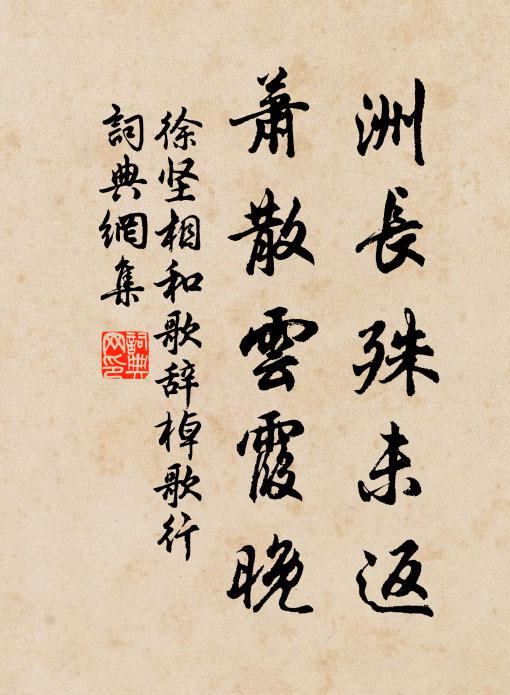 洲長殊未返
蕭散雲霞晚
徐坚相和歌辞棹歌行
詞典網集
詞典網印